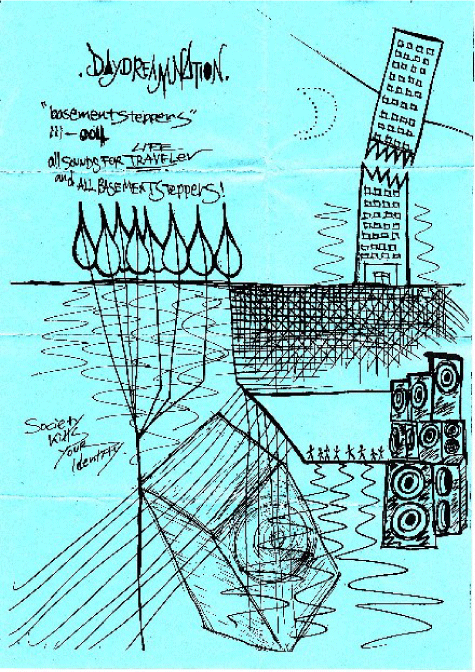 .DAYDREAMNATION.
"basement steppers"
001-004
all SOUNDS FOR LIFE TRAVELER
and ALL BASEMENT Steppers!
Society
Kills
Your
Identity